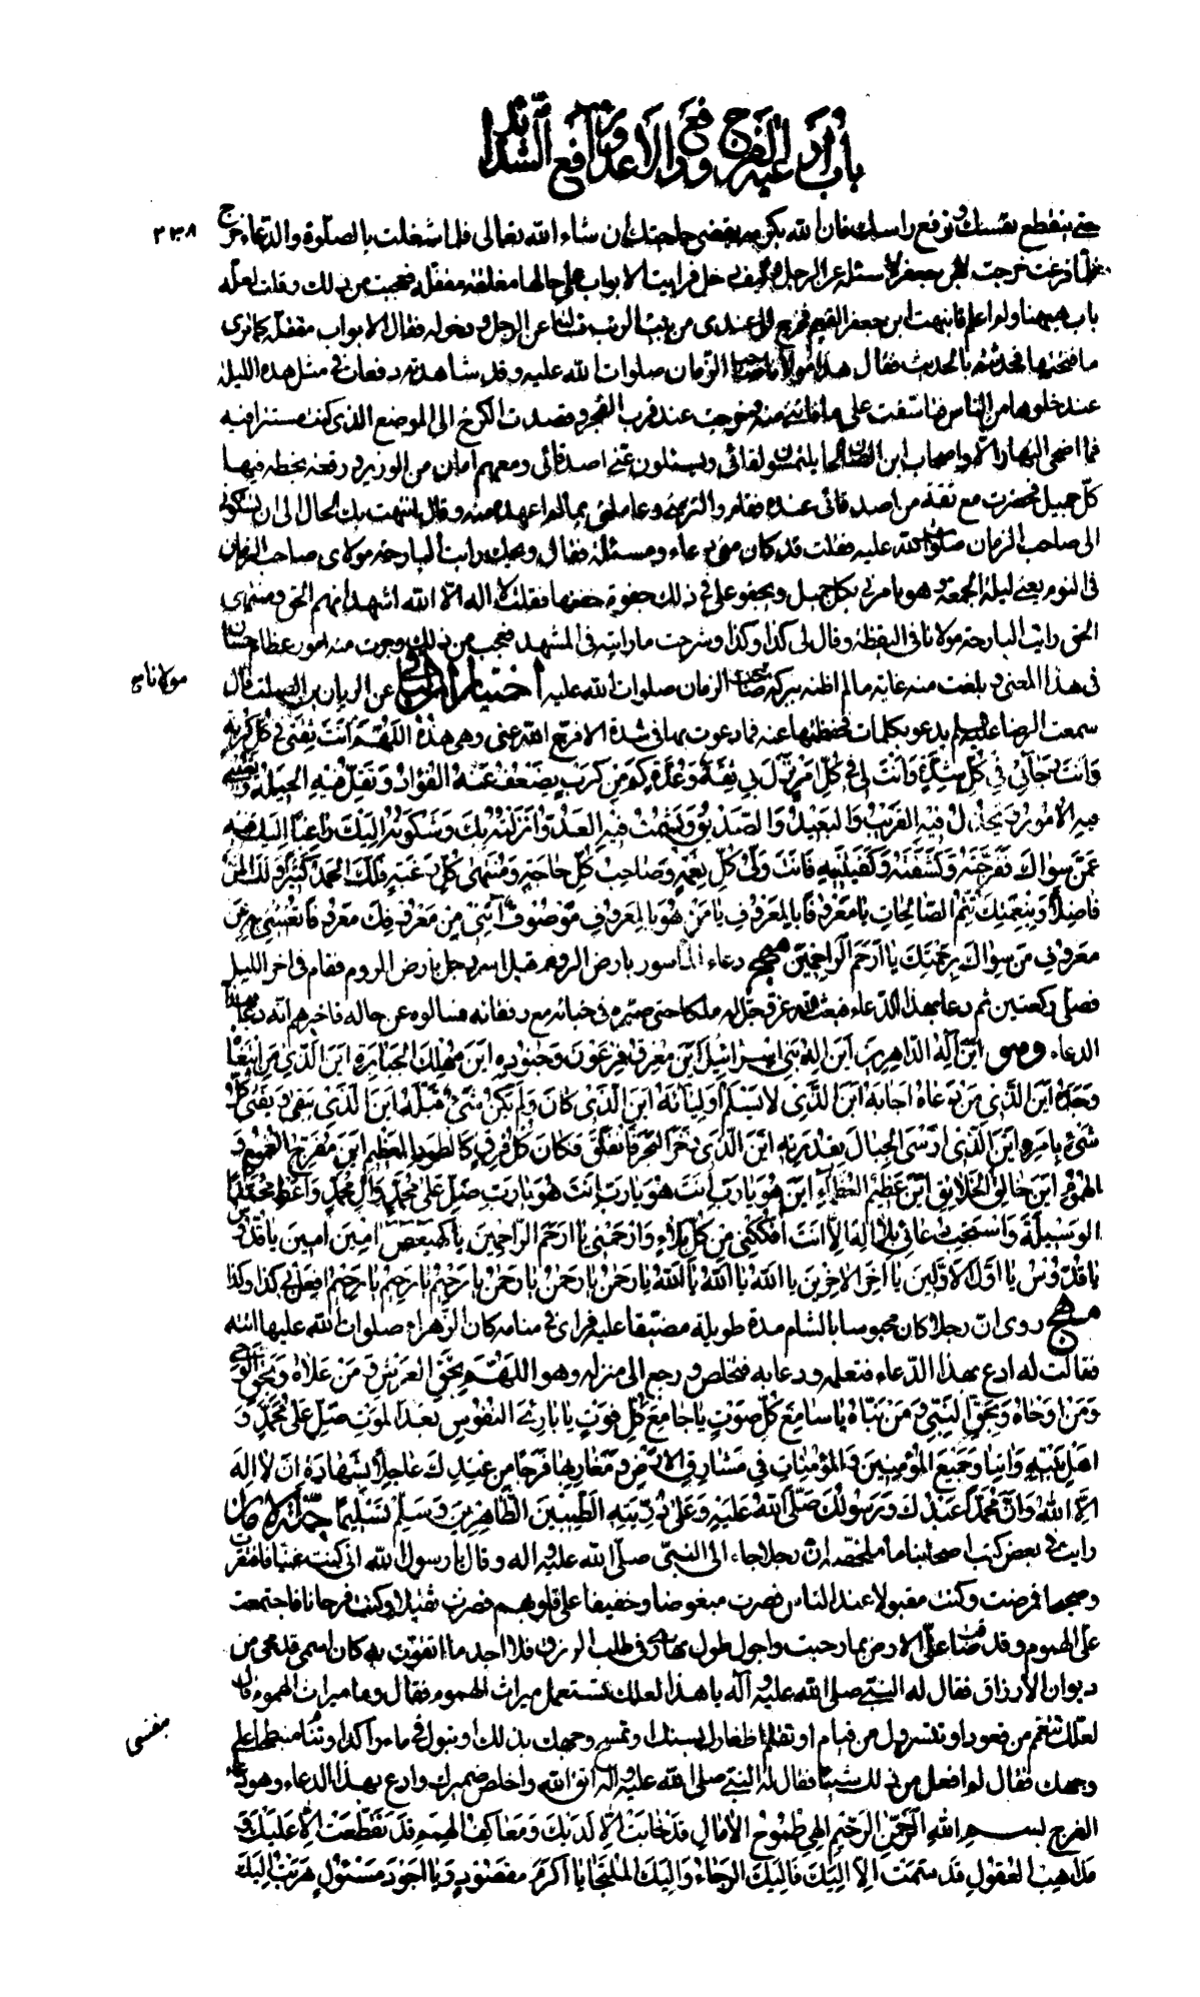 باب ادعية الفرج ودفع الاعداء ورفع الشدائد
٢٣٨
حتى ينقطع نفسك وترفع راسك فان الله بكرمه يقضى حاجتك ان شاء الله تعالى فلما اشتغلت بالصلوة والدعاء خرج
فلما فرغت خرجت لابن جعفر لاسئله عن الرجل وكيف دخل فرايت الابواب على حالها مغلقة مقفلة فعجبت من ذلك وقلت لعله
باب ههنا ولم اعلم فانبهت ابن جعفر القيم فخرج الى عندى من بيت الزيت فسئلته عن الرجل ودخوله فقال الابواب مقفلة كما ترى
ما فتحتها فحدثته بالحديث فقال هذا مولانا صاحب الزمان صلوات الله عليه وقد شاهدته دفعات فى مثل هذه الليلة
عند خلوها من الناس فتاسفت على ما فاتنى منه وخرجت عند قرب الفجر وقصدت الكرخ الى الموضع الذى كنت مستترا فيه
فما اضحى النهار الا واصحاب ابن الصالحان يلتمسون لقائى ويسئلون عنى اصدقائى ومعهم امان من الوزير ورقعة بخطه فيها
كل جميل فحضرت مع ثقة من اصدقائى عنده فقام والتزمنى وعاملنى بما لم اعهده منه وقال انتهت بك الحال الى ان تشكونى
الى صاحب الزمان صلوات الله عليه فقلت قد كان منى دعاء ومسئلة فقال ويحك رايت البارحة مولاى صاحب الزمان
فى النوم يعنى ليلة الجمعة وهو يامرنى بكل جميل ويجفو على فى ذلك جفوة خفتها فقلت لا اله الا الله اشهد انهم الحق ومنتهى
الحق رايت البارحة مولانا فى اليقظة وقال لى كذا وكذا وشرحت ما رايته فى المشهد فعجب من ذلك وجرت منه امور عظام حسان
فى هذا المعنى وبلغت منه غاية ما لم اظنه ببركة صاحب الزمان صلوات الله عليه اختيار ابن الباقى عن الريان بن الصلت قال
مولانا
سمعت الرضا عليه السلم يدعو بكلمات فحفظتها عنه فما دعوت بها فى شدة الا فرج الله عنى وهى هذه اللهم انت ثقتى فى كل كربة
وانت رجائى فى كل شدة وانت لى فى كل امر نزل بى ثقة وعدة كم من كرب يضعف عنه الفؤاد وتقل فيه الحيلة وتعيى
فيه الامور ويخذل فيه القريب والبعيد والصديق ويشمت فيه العدو انزلته بك وشكوته اليك راغبا اليك فيه
عمن سواك ففرجته وكشفته وكفيتنيه فانت ولى كل نعمة وصاحب كل حاجة ومنتهى كل رغبة فلك الحمد كثيرا ولك المن
فاضلا وبنعمتك تتم الصالحات يا معروفا بالمعروف يا من هو بالمعروف موصوف انلنى من معروفك معروفا تغنينى به عن
معروف من سواك برحمتك يا ارحم الراحمين مهج دعاء الماسور بارض الروم قيل اسر رجل بارض الروم فقام فى اخر الليل
فصلى ركعتين ثم دعا بهذا الدعاء فبعث الله عز وجل له ملكا حتى صيره فى خبائه مع رفقائه فسالوه عن حاله فاخبرهم انه دعا بهذا
الدعاء وهو اين اله الداهرين اين اله بنى اسرائيل اين مغرق فرعون وجنوده اين مهلك الجبابرة اين الذى من ابتغاه
وجده اين الذى من دعاه اجابه اين الذى لا يسلم اوليائه اين الذى كان ولم يكن شىء قبله اين الذى يبقى ويفنى كل
شىء بامره اين الذى ارسى الجبال بقدرته اين الذى زجر البحر فانفلق فكان كل فرق كالطود العظيم اين مفرج الغموم و
الهموم اين خالق الخلائق اين عظيم العظماء اين هو يا رب انت هو يا رب انت هو يا رب صل على محمد وال محمد واعط محمدا
الوسيلة واستجب دعائى بلا اله الا انت افككنى من كل بلاء وارحمنى يا ارحم الراحمين يا كهيعص امين امين يا قدوس
يا قدوس يا اول الاولين يا آخر الاخرين يا الله يا الله يا الله يا رحمن يا رحمن يا رحمن يا رحيم يا رحيم يا رحيم افعل بى كذا وكذا
مهج روى ان رجلا كان محبوسا بالشام مدة طويلة مضيقا عليه فراى فى منامه كان الزهراء صلوات الله عليها اتته
فقالت له ادع بهذا الدعاء فتعلمه ودعا به فتخلص ورجع الى منزله وهو اللهم بحق العرش ومن علاه وبحق الوحى
ومن اوحاه وبحق النبى ومن نباه يا سامع كل صوت يا جامع كل فوت يا بارئ النفوس بعد الموت صل على محمد و
اهل بيته وآتنا وجميع المؤمنين والمؤمنات فى مشارق الارض ومغاربها فرجا من عندك عاجلا بشهادة ان لا اله
الا الله وان محمدا عبدك ورسولك صلى الله عليه وعلى ذريته الطيبين الطاهرين وسلم تسليما جنة الامان
رايت فى بعض كتب اصحابنا ما ملخصه ان رجلا جاء الى النبى صلى الله عليه واله وقال يا رسول الله انى كنت غنيا فافتقرت
وصحيحا فمرضت وكنت مقبولا عند الناس فصرت مبغوضا وخفيفا على قلوبهم فصرت ثقيلا وكنت فرحانا فاجتمعت
على الهموم وقد ضاقت على الارض بما رحبت واجول طول نهارى فى طلب الرزق فلا اجد ما اتقوت به كان اسمى قد محى من
ديوان الارزاق فقال له النبى صلى الله عليه وآله يا هذا لعلك تستعمل ميراث الهموم فقال وما ميراث الهموم قال
لعلك تتعمم من قعود او تتسرول من قيام او تقلم اظفارك بسنك او تمسح وجهك بذيلك او تبول فى ماء راكد او تنام منبطحا على
وجهك فقال لم افعل من ذلك شيئا فقال له النبى صلى الله عليه واله اتق الله واخلص ضميرك وادع بهذا الدعاء وهو دعاء
الفرج بسم الله الرحمن الرحيم الهى طموح الآمال قد خابت الا لديك ومعاكف الهمم قد تقطعت الا عليك و
مذاهب العقول قد سمت الا اليك فاليك الرجاء واليك الملتجأ يا اكرم مقصود ويا اجود مسئول هربت اليك
بنفسى